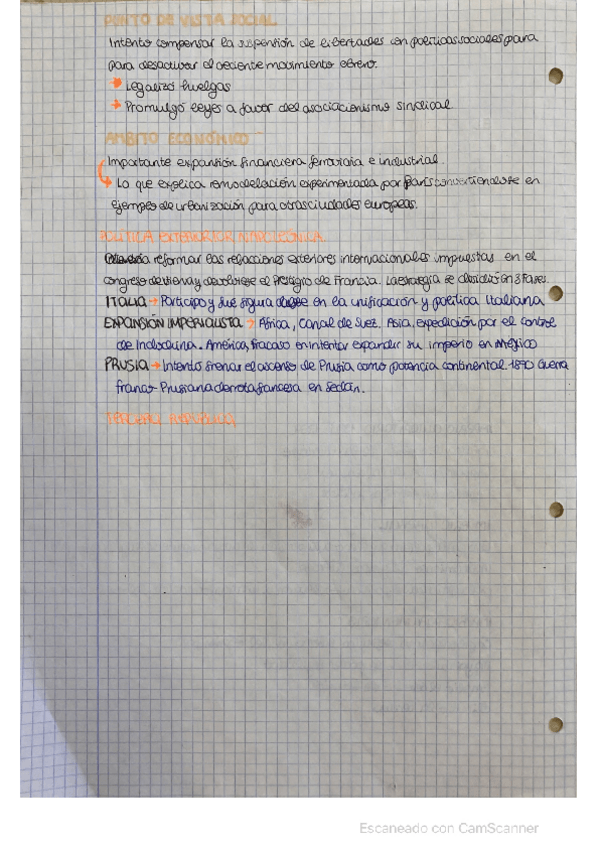 PUNTO DE VISTA SOCIAL
Intento compensar la supensión de libertades con políticas sociales para
para desactivar el creciente movimiento obrero.
→ Legalizó huelgas
→ Promulgó leyes a favor del asociacionismo sindical
ÁMBITO ECONÓMICO
Importante expansión financiera ferroviaria e industrial.
↳ Lo que explica remodelación experimentada por París convertiendose en
ejemplo de urbanización para otras ciudades europeas.
POLÍTICA EXTERIOR NAPOLEÓNICA
reformar las relacciones exteriores internacionales impuestas en el
congreso de viena y devolverse el prestigio de Francia. La estrategia se dividió en 3 fases.
ITALIA → Participó y fue figura clave en la unificación y política Italiana
EXPANSIÓN IMPERIALISTA → África, Canal de Suez. Asia, expedición por el control
de Indochina. América, fracaso en intentar expandir su imperio en México
PRUSIA → Intentó frenar el ascenso de Prusia como potencia continental. 1870 Guerra
franco-Prusiana derrota francesa en Sedán.
TERCERA REPÚBLICA
Escaneado con CamScanner